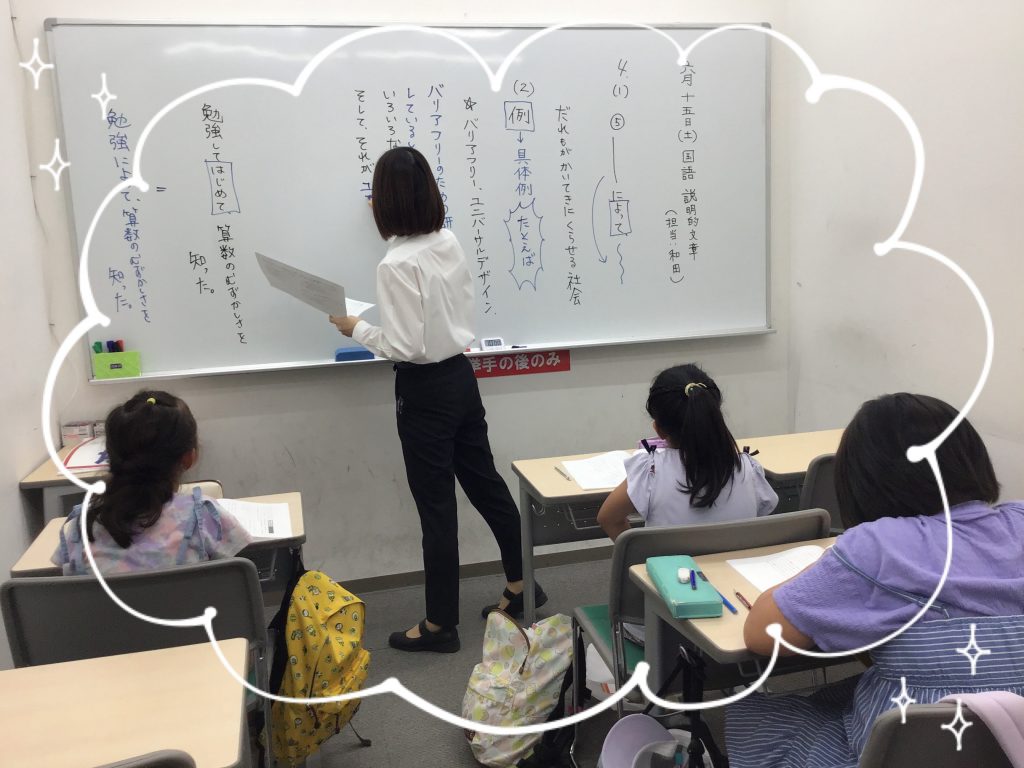 六月十五日(土) 国語 説明的文章
(担当:和田)
4.(1) ⑤ によって
だれもがかいてきにくらせる社会
(2) 例 → 具体例 たとえば
☆バリアフリー、ユニバーサルデザイン、
バリアフリーのための研
している
いろいろな
そして、それが、ユ
勉強してはじめて 算数のむずかしさを
知った。
=
勉強によって、算数のむずかしさを
知った。
挙手の後のみ